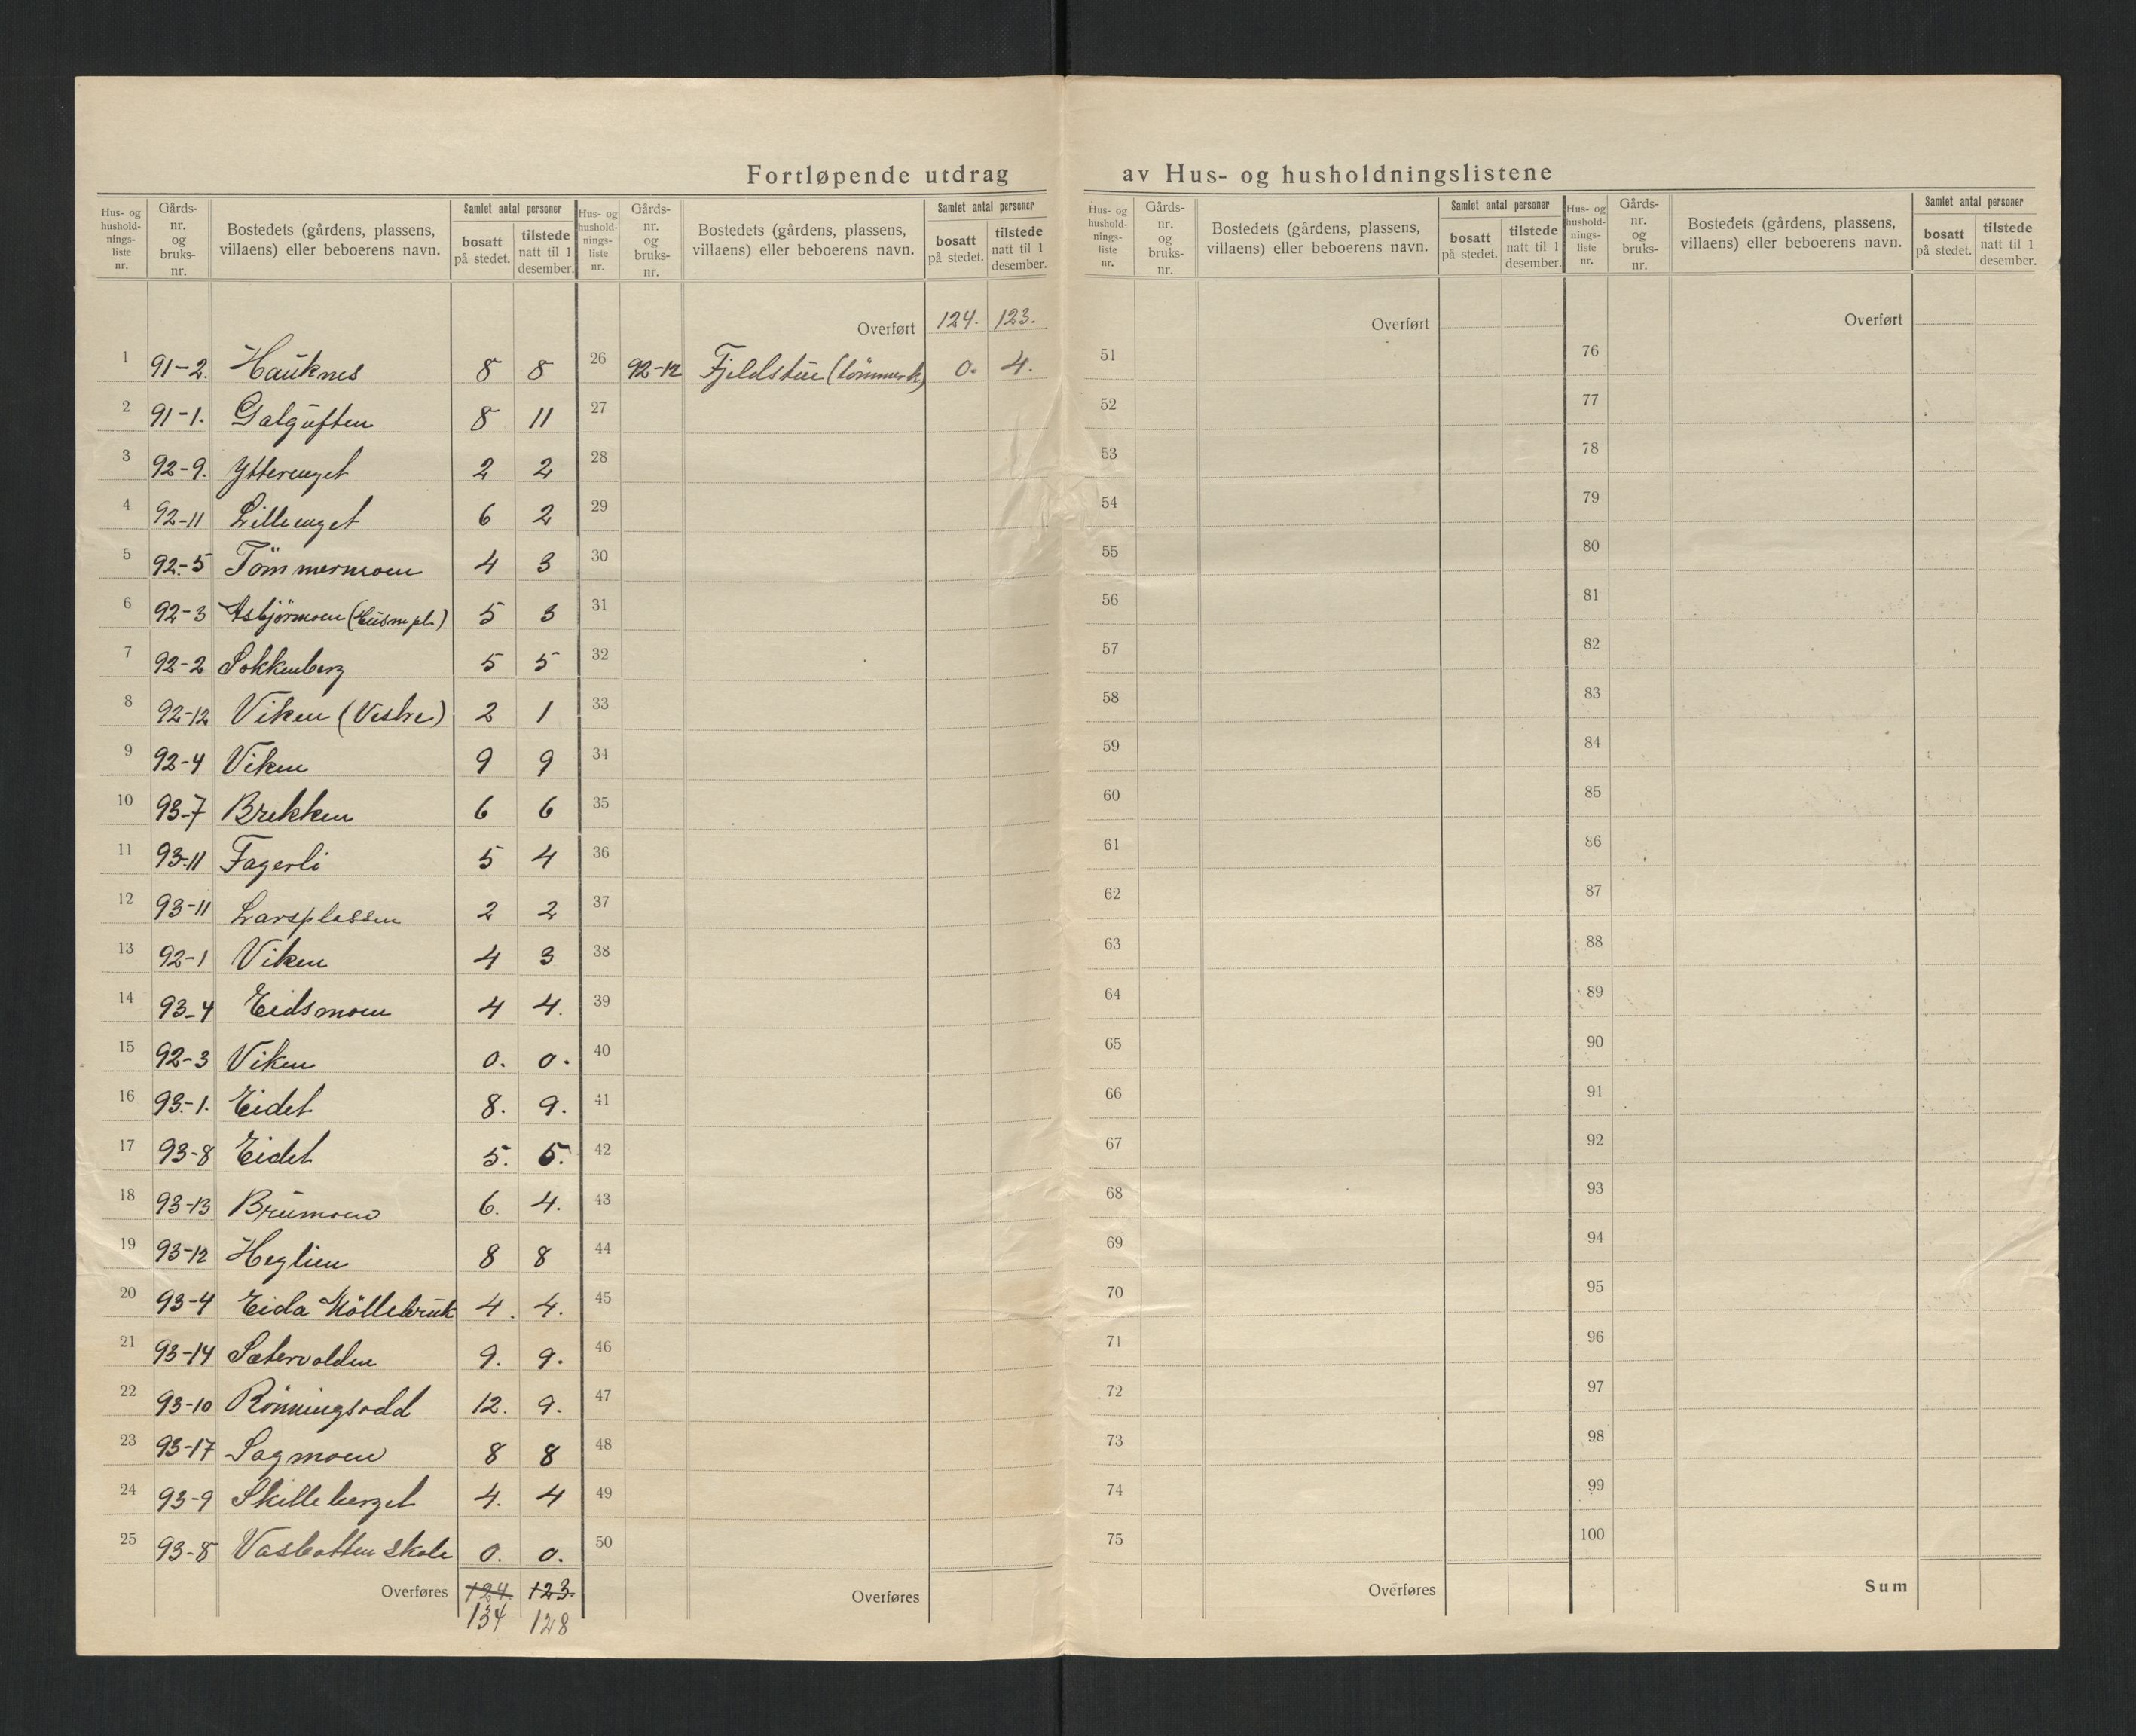 Fortløpende utdrag av Hus- og husholdningslistene
Hus- og hushold- nings- liste nr.
Gårds- nr. og bruks- nr.
Bostedets (gårdens, plassens, villaens) eller beboerens navn.
Samlet antal personer
bosatt på stedet.
tilstede natt til 1 desember.
Hus- og hushold- nings- liste nr.
Gårds- nr. og bruks- nr.
Bostedets (gårdens, plassens, villaens) eller beboerens navn.
Samlet antal personer
bosatt på stedet.
tilstede natt til 1 desember.
1 91-2. Hauknes 8 8
2 91-1. Galguften 8 11
3 92-9. Ytterenget 2 2
4 92-11 Lillenget 6 2
5 92-5 Tömmermoen 4 3
6 92-3 Asbjörmoen (Husmpl.) 5 3
7 92-2 Sokkenberg 5 5
8 92-12 Viken (Vestre) 2 1
9 92-4 Viken 9 9
10 93-7 Brekken 6 6
11 93-11 Fagerli 5 4
12 93-11 Larsplassen 2 2
13 92-1 Viken 4 3
14 93-4 Eidsmoen 4 4.
15 92-3 Viken 0. 0.
16 93-1. Eidet 8. 9.
17 93-8 Eidet 5. 5.
18 93-13 Brumoen 6. 4.
19 93-12 Heglien 8 8
20 93-4 Eida Möllebruk 4. 4.
21 93-14 Sætervolden 9. 9.
22 93-10 Rönningsodd 12. 9.
23 93-17 Sagmoen 8 8
24 93-9 Skilleberget 4. 4
25 93-8 Vasbotten Skole 0. 0.
Overføres 124. 123.
134 128
Overført 124. 123.
26 92-12 Fjeldstue 0. 4.
27
28
29
30
31
32
33
34
35
36
37
38
39
40
41
42
43
44
45
46
47
48
49
50
Overføres
Hus- og hushold- nings- liste nr.
Gårds- nr. og bruks- nr.
Bostedets (gårdens, plassens, villaens) eller beboerens navn.
Samlet antal personer
bosatt på stedet.
tilstede natt til 1 desember.
Hus- og hushold- nings- liste nr.
Gårds- nr. og bruks- nr.
Bostedets (gårdens, plassens, villaens) eller beboerens navn.
Samlet antal personer
bosatt på stedet.
tilstede natt til 1 desember.
Overført
51
52
53
54
55
56
57
58
59
60
61
62
63
64
65
66
67
68
69
70
71
72
73
74
75
Overføres
Overført
76
77
78
79
80
81
82
83
84
85
86
87
88
89
90
91
92
93
94
95
96
97
98
99
100
Sum